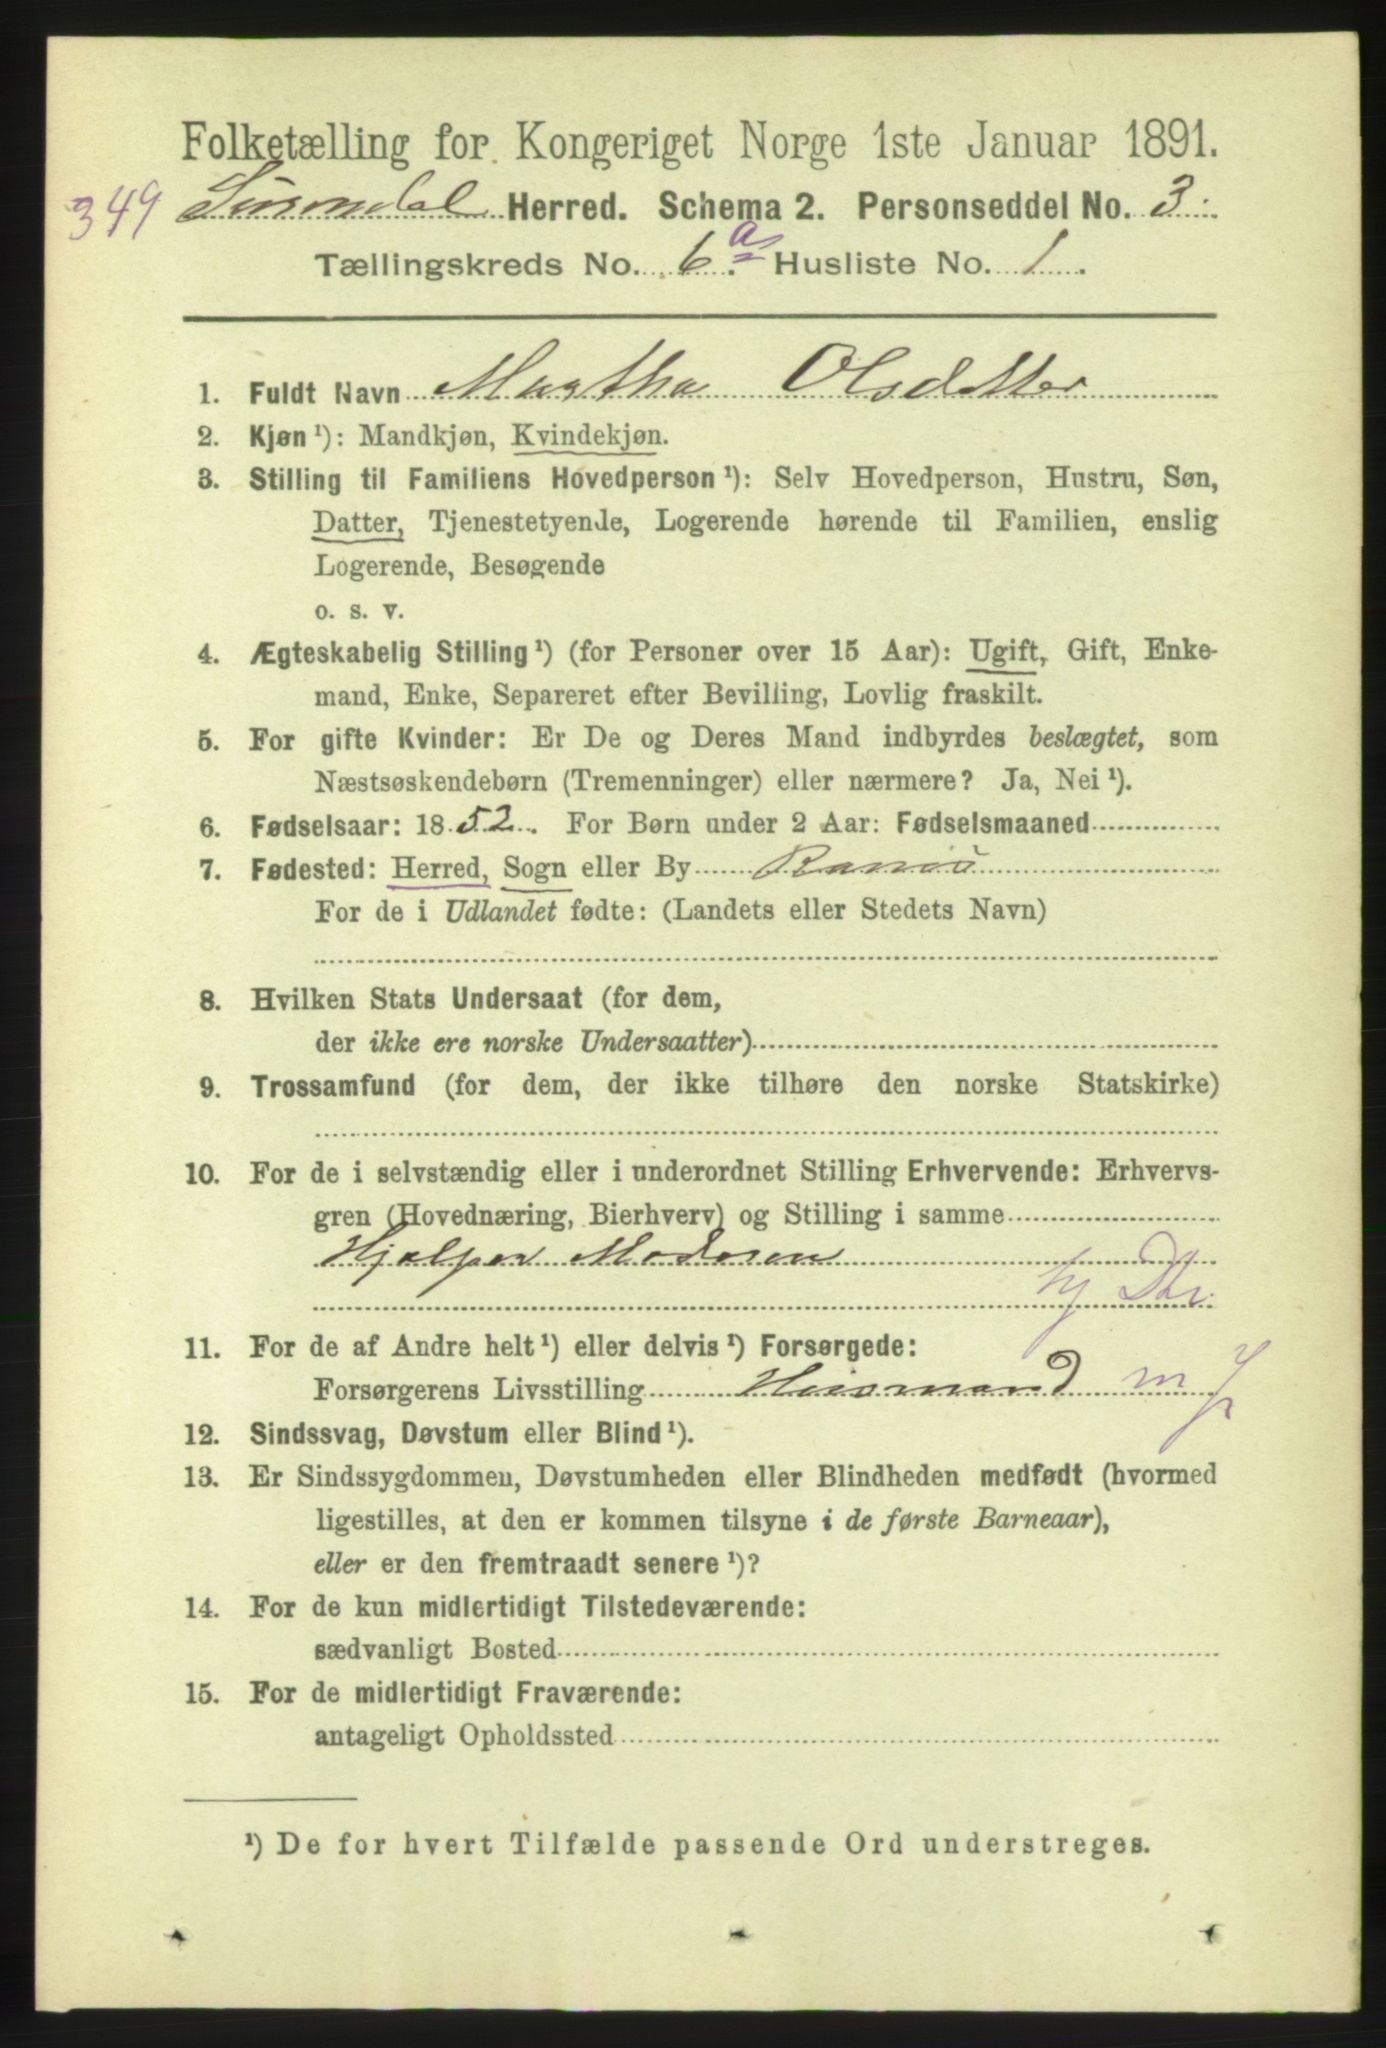 Folketælling for Kongeriget Norge 1ste Januar 1891.
349 Surendal Herred. Schema 2. Personseddel No. 3
Tællingskreds No. 6 a Husliste No. 1
1. Fuldt Navn Martha Olsdatter
2. Kjøn¹): Mandkjøn, Kvindekjøn.
3. Stilling til Familiens Hovedperson¹): Selv Hovedperson, Hustru, Søn,
Datter, Tjenestetyende, Logerende hørende til Familien, enslig
Logerende, Besøgende
o. s. v.
4. Ægteskabelig Stilling¹) (for Personer over 15 Aar): Ugift, Gift, Enke-
mand, Enke, Separeret efter Bevilling, Lovlig fraskilt.
5. For gifte Kvinder: Er De og Deres Mand indbyrdes beslægtet, som
Næstsøskendebørn (Tremenninger) eller nærmere? Ja, Nei¹).
6. Fødselsaar: 1852. For Børn under 2 Aar: Fødselsmaaned
7. Fødested: Herred, Sogn eller By Ranæs
For de i Udlandet fødte: (Landets eller Stedets Navn)
8. Hvilken Stats Undersaat (for dem,
der ikke ere norske Undersaatter)
9. Trossamfund (for dem, der ikke tilhøre den norske Statskirke)
10. For de i selvstændig eller i underordnet Stilling Erhvervende: Erhvervs-
gren (Hovednæring, Bierhverv) og Stilling i samme
Hjælper Moderen
hj Dtr.
11. For de af Andre helt¹) eller delvis¹) Forsørgede:
Forsørgerens Livsstilling Husmand m J
12. Sindssvag, Døvstum eller Blind¹).
13. Er Sindssygdommen, Døvstumheden eller Blindheden medfødt (hvormed
ligestilles, at den er kommen tilsyne i de første Barneaar),
eller er den fremtraadt senere¹)?
14. For de kun midlertidigt Tilstedeværende:
sædvanligt Bosted
15. For de midlertidigt Fraværende:
antageligt Opholdssted
¹) De for hvert Tilfælde passende Ord understreges.